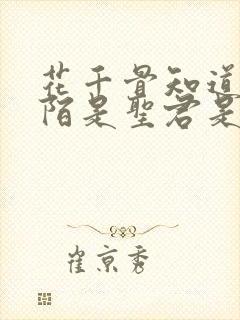 花千骨知道
陌是聖君是
崔京秀